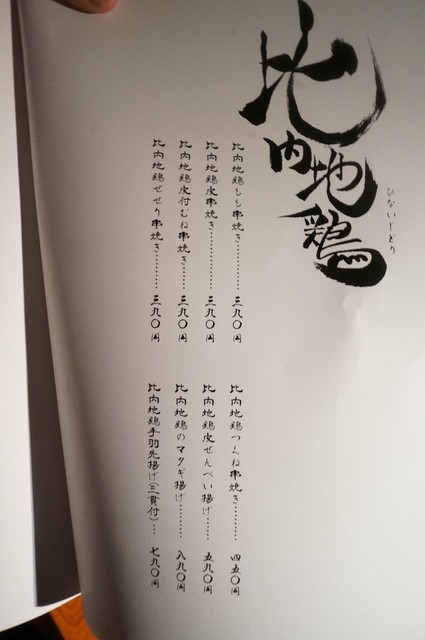 比内地鶏
ひないじどり
比内地鶏もも串焼き………三九〇円
比内地鶏皮串焼き…………三九〇円
比内地鶏皮付むね串焼き……三九〇円
比内地鶏せせり串焼き………三九〇円
比内地鶏つくね串焼き………四五〇円
比内地鶏皮せんべい揚げ……五九〇円
比内地鶏のマタギ揚げ………八九〇円
比内地鶏手羽先揚げ(三貫付)…七九〇円